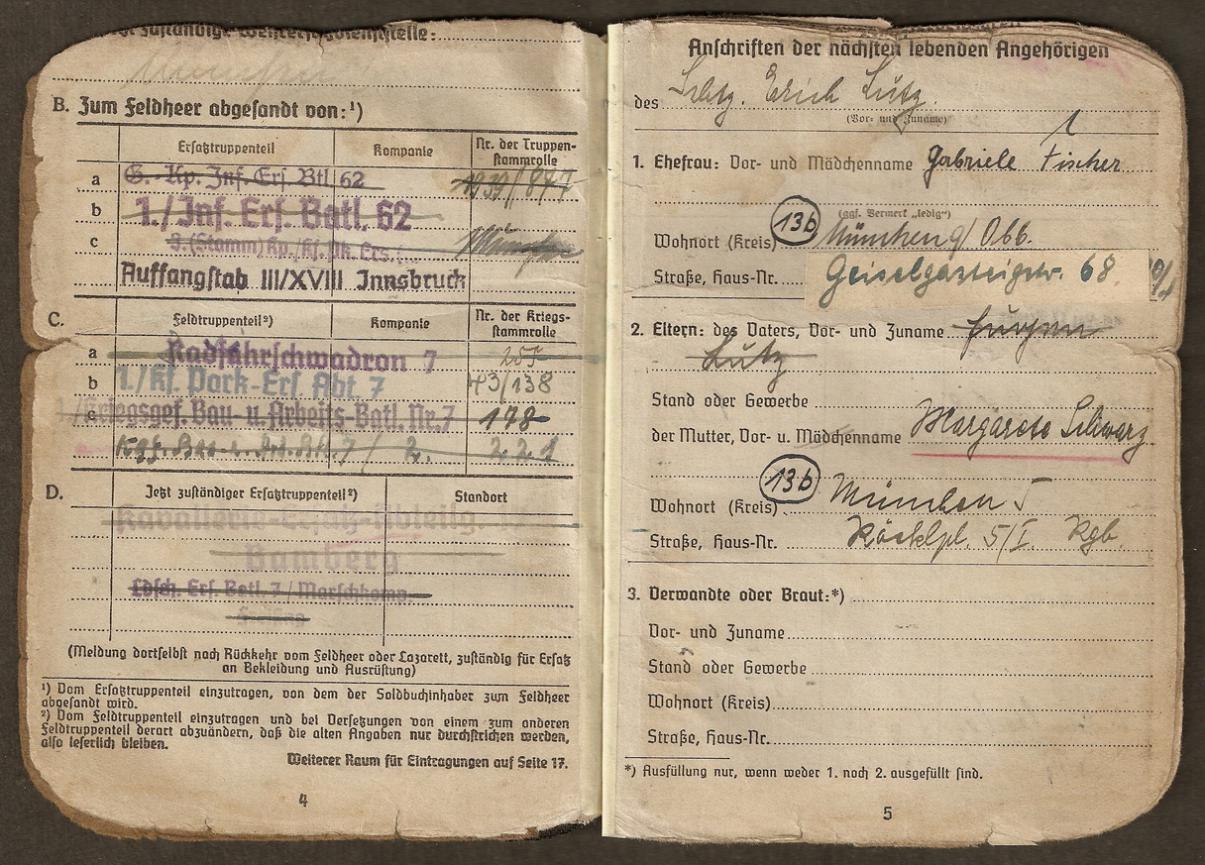 zuständige Wehrersatzdienststelle:
B. Zum Feldheer abgesandt von:¹)
Ersatztruppenteil Kompanie Nr. der Truppen-
stammrolle
a G. Kp. Inf. Ers. Btl. 62 1939/847
b 1./Inf. Ers. Batl. 62
c München
Auffangstab III/XVIII Innsbruck
C. Feldtruppenteil²) Kompanie Nr. der Kriegs-
stammrolle
a Radfahrschwadron 7 255
b 1./Kf. Park-Ers. Abt. 7 43/138
c Kriegsgef. Bau- u. Arbeits-Batl. Nr. 7 178
Kgf. Bau- u. Arb. Btl. 7 / 2. 221
D. Jetzt zuständiger Ersatztruppenteil²) Standort
Kavallerie-Ersatz-Abteilg
Bamberg
Ldsch. Ers. Batl. 7 / Marschkomp.
(Meldung dortselbst nach Rückkehr vom Feldheer oder Lazarett, zuständig für Ersatz
an Bekleidung und Ausrüstung)
¹) Vom Ersatztruppenteil einzutragen, von dem der Soldbuchinhaber zum Feldheer
abgesandt wird.
²) Vom Feldtruppenteil einzutragen und bei Versetzungen von einem zum anderen
Feldtruppenteil derart abzuändern, daß die alten Angaben nur durchstrichen werden,
also leserlich bleiben.
Weiterer Raum für Eintragungen auf Seite 17.
4
Anschriften der nächsten lebenden Angehörigen
des Schtz. Erich Lutz.
(Vor- und Zuname)
1
1. Ehefrau: Vor- und Mädchenname Gabriele Fischer
(ggf. Vermerk „ledig")
Wohnort (Kreis) 13b München 9/Obb.
Straße, Haus-Nr. Geiselgasteigstr. 68
2. Eltern: des Vaters, Vor- und Zuname
Lutz
Stand oder Gewerbe
der Mutter, Vor- u. Mädchenname Margarete Schwarz
Wohnort (Kreis) 13b München 5
Straße, Haus-Nr. Röcklpl. 5/I. Rgb.
3. Verwandte oder Braut:*)
Vor- und Zuname
Stand oder Gewerbe
Wohnort (Kreis)
Straße, Haus-Nr.
*) Ausfüllung nur, wenn weder 1. noch 2. ausgefüllt sind.
5